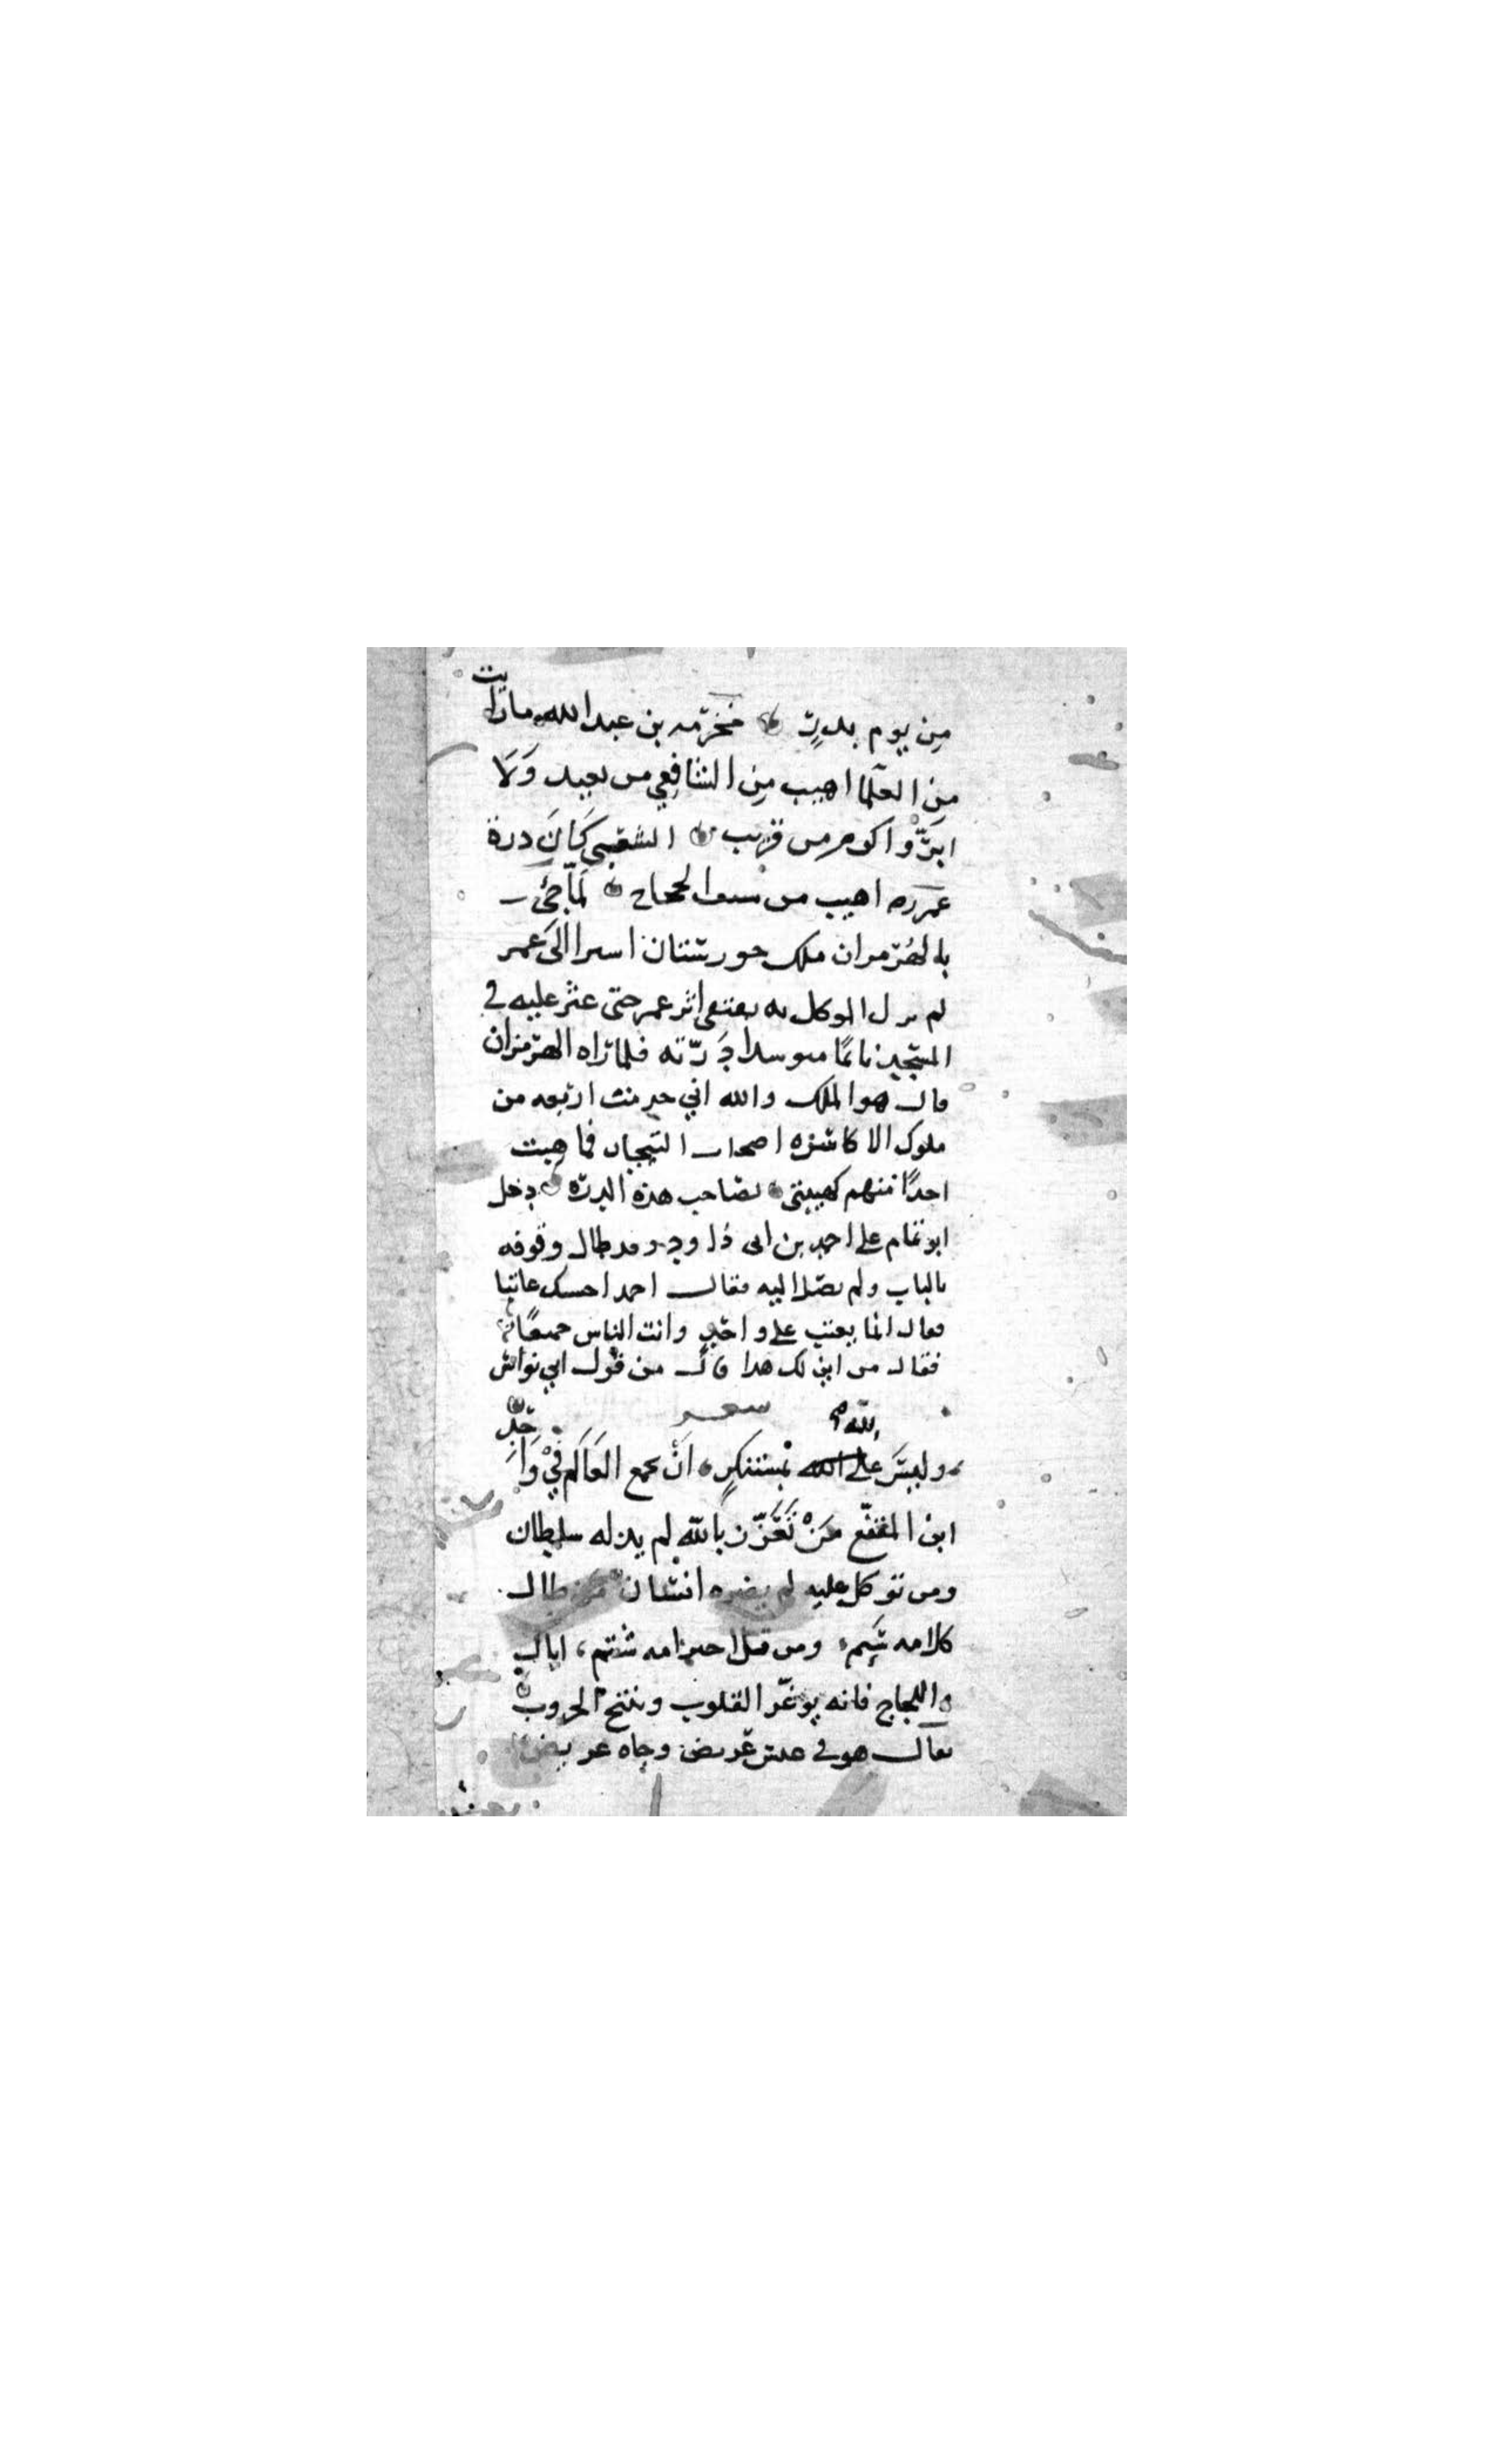 من يوم بدر مخرمه بن عبدالله ما رايت
من العلما اهيب من الشافعي من بعيد ولا
ابر واكرم من قريب الشعبي كان درة
عمر رضه اهيب من سيف الحجاج لما جئ
بالهرمزان ملك خورستان اسيرا الى عمر
لم يزل الموكل به يقتفي اثر عمر حتى عثر عليه في
المسجد نائما متوسدا درته فلما راه الهرمزان
قال هو الملك والله اني خدمت اربعه من
ملوك الاكاسره اصحاب التيجان فما هبت
احدا منهم كهيبتي لصاحب هذه الدره دخل
ابو تمام على احمد بن ابي داود وقد طال وقوفه
بالباب ولم يصل اليه فقال احمد احسبك عاتبا
فقال انما يعتب على واحد وانت الناس جميعا
فقال من اين لك هذا قال من قول ابي نواس
شعر
وليس على الله لله بمستنكر ان يجمع العالم في واحد
ابن المقفع من تعزز بالله لم يذله سلطان
ومن توكل عليه لم يضره انسان من طال
كلامه سئم ومن قل احترامه شتم اياك
واللجاج فانه يوغر القلوب وينتج الحروب
يقال هو في عيش غريض وجاه عريض